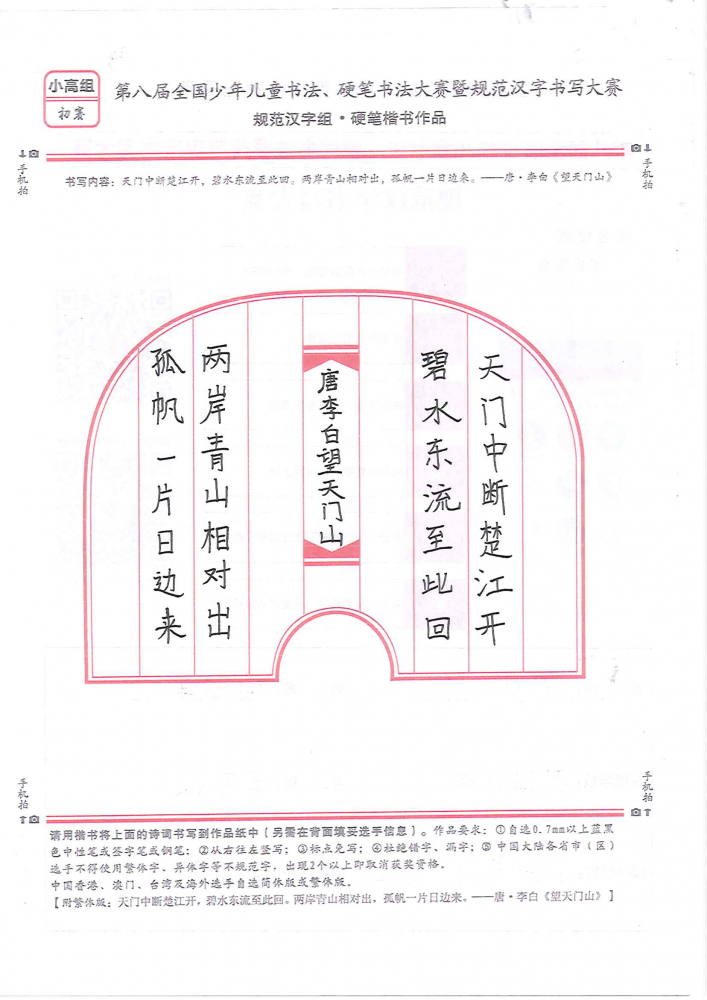 小高组
初赛
第八届全国少年儿童书法、硬笔书法大赛暨规范汉字书写大赛
规范汉字组·硬笔楷书作品
手机拍
手机拍
书写内容：天门中断楚江开，碧水东流至此回。两岸青山相对出，孤帆一片日边来。——唐·李白《望天门山》
天门中断楚江开
碧水东流至此回
唐李白望天门山
两岸青山相对出
孤帆一片日边来
手机拍
手机拍
请用楷书将上面的诗词书写到作品纸中（另需在背面填妥选手信息）。作品要求：①自选0.7mm以上蓝黑
色中性笔或签字笔或钢笔；②从右往左竖写；③标点免写；④杜绝错字、漏字；⑤中国大陆各省市（区）
选手不得使用繁体字、异体字等不规范字，出现2个以上即取消获奖资格。
中国香港、澳门、台湾及海外选手自选简体版或繁体版。
【附繁体版：天门中断楚江开，碧水东流至此回。两岸青山相对出，孤帆一片日边来。——唐·李白《望天门山》】